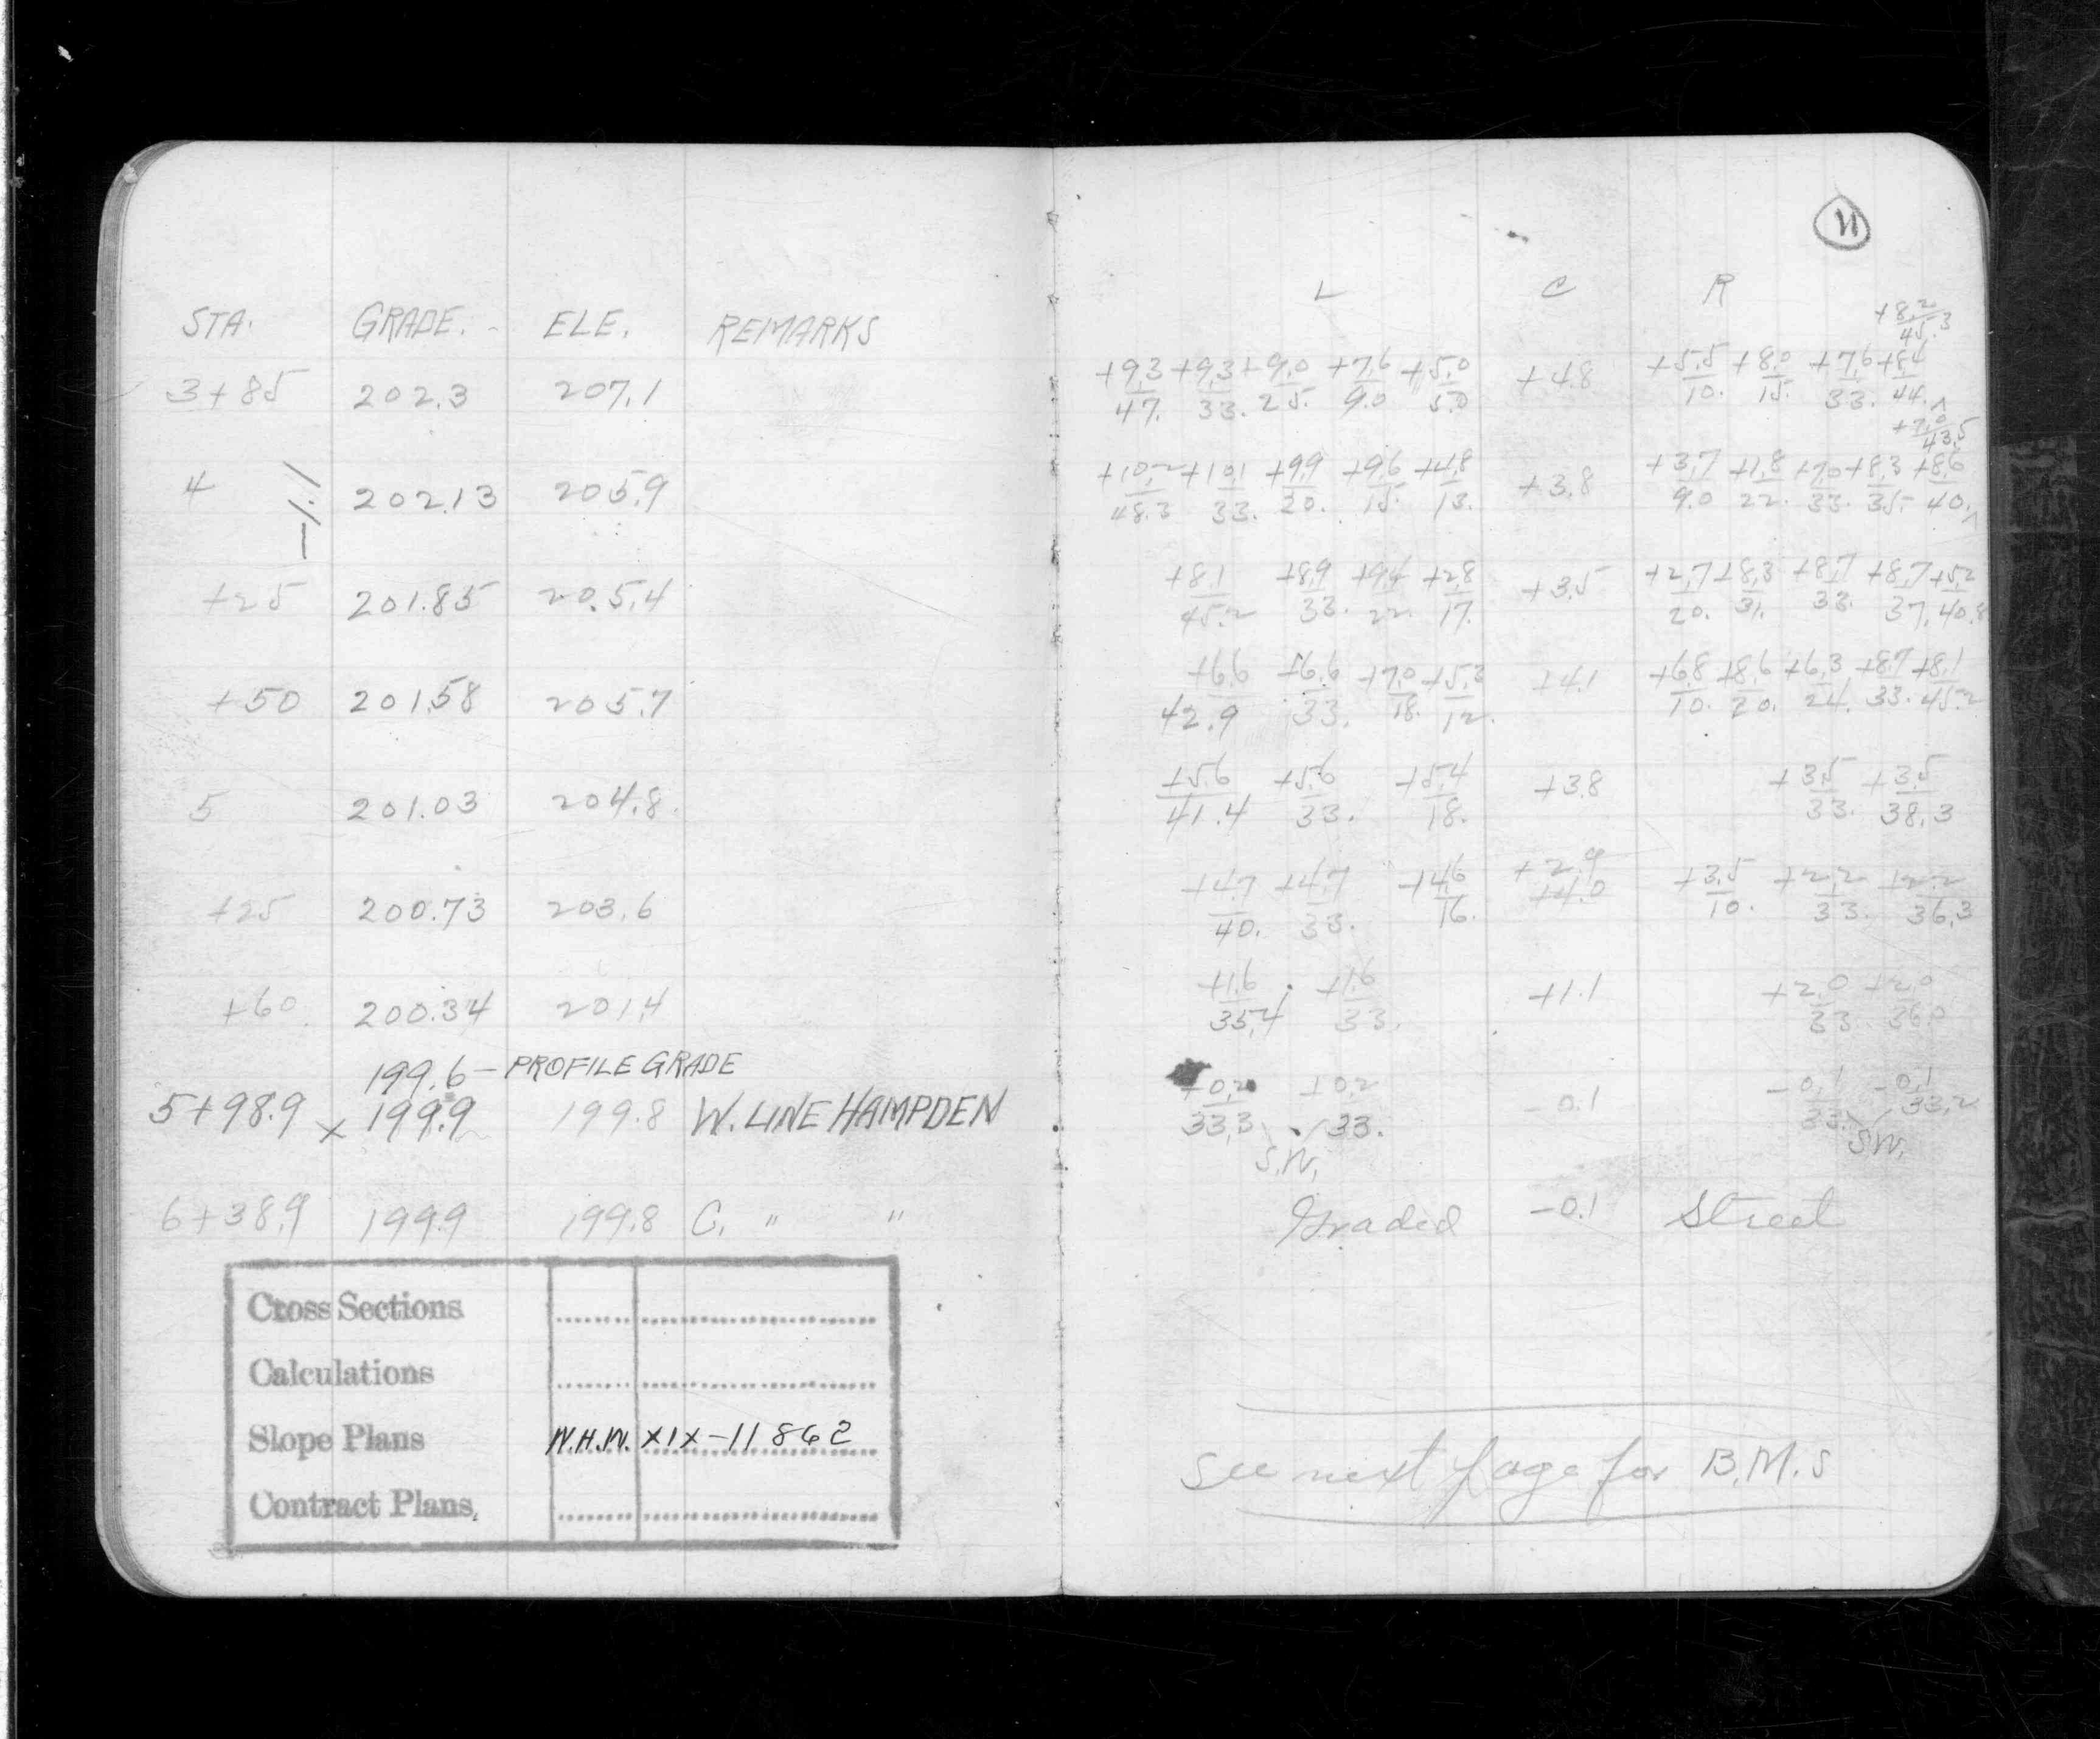 STA. GRADE. ELE. REMARKS
3+85 202.3 207.1
4 202.13 205.9
-1.1
+25 201.85 205.4
+50 201.58 205.7
5 201.03 204.8
+25 200.73 203.6
+60 200.34 201.4
199.6 - PROFILE GRADE
5+98.9 x 199.9 199.8 W. LINE HAMPDEN
6+38.9 199.9 199.8 C. " "
Cross Sections
Calculations
Slope Plans W.H.W. XIX-11862
Contract Plans
11
L C R
+8.2
45.3
+9.3 +9.3 +9.0 +7.6 +5.0 +4.8 +5.5 +8.0 +7.6 +8.4
47. 33. 25. 9.0 5.0 10. 15. 33. 44.
+7.0
43.5
+10.2 +10.1 +9.9 +9.6 +4.8 +3.8 +3.7 +1.8 +7.0 +8.3 +8.6
48.3 33. 20. 15. 13. 9.0 22. 33. 35. 40.
+8.1 +8.9 +9.4 +2.8 +3.5 +2.7 +8.3 +8.7 +8.7 +5.2
45.2 33. 22. 17. 20. 31. 33. 37. 40.8
+6.6 +6.6 +7.0 +5.3 +4.1 +6.8 +8.6 +6.3 +8.7 +8.1
42.9 33. 18. 12. 10. 20. 24. 33. 45.2
+5.6 +5.6 +5.4 +3.8 +3.5 +3.5
41.4 33. 18. 33. 38.3
+2.9
+4.7 +4.7 +4.6 +4.0 +3.5 +2.2 +2.2
40. 33. 16. 10. 33. 36.3
+1.6 +1.6 +1.1 +2.0 +2.0
35.4 33. 33. 36.0
+0.2 +0.2 -0.1 -0.1 -0.1
33.3 33. 33. 33.2
S.W. S.W.
Graded -0.1 Street
See next page for B.M.s